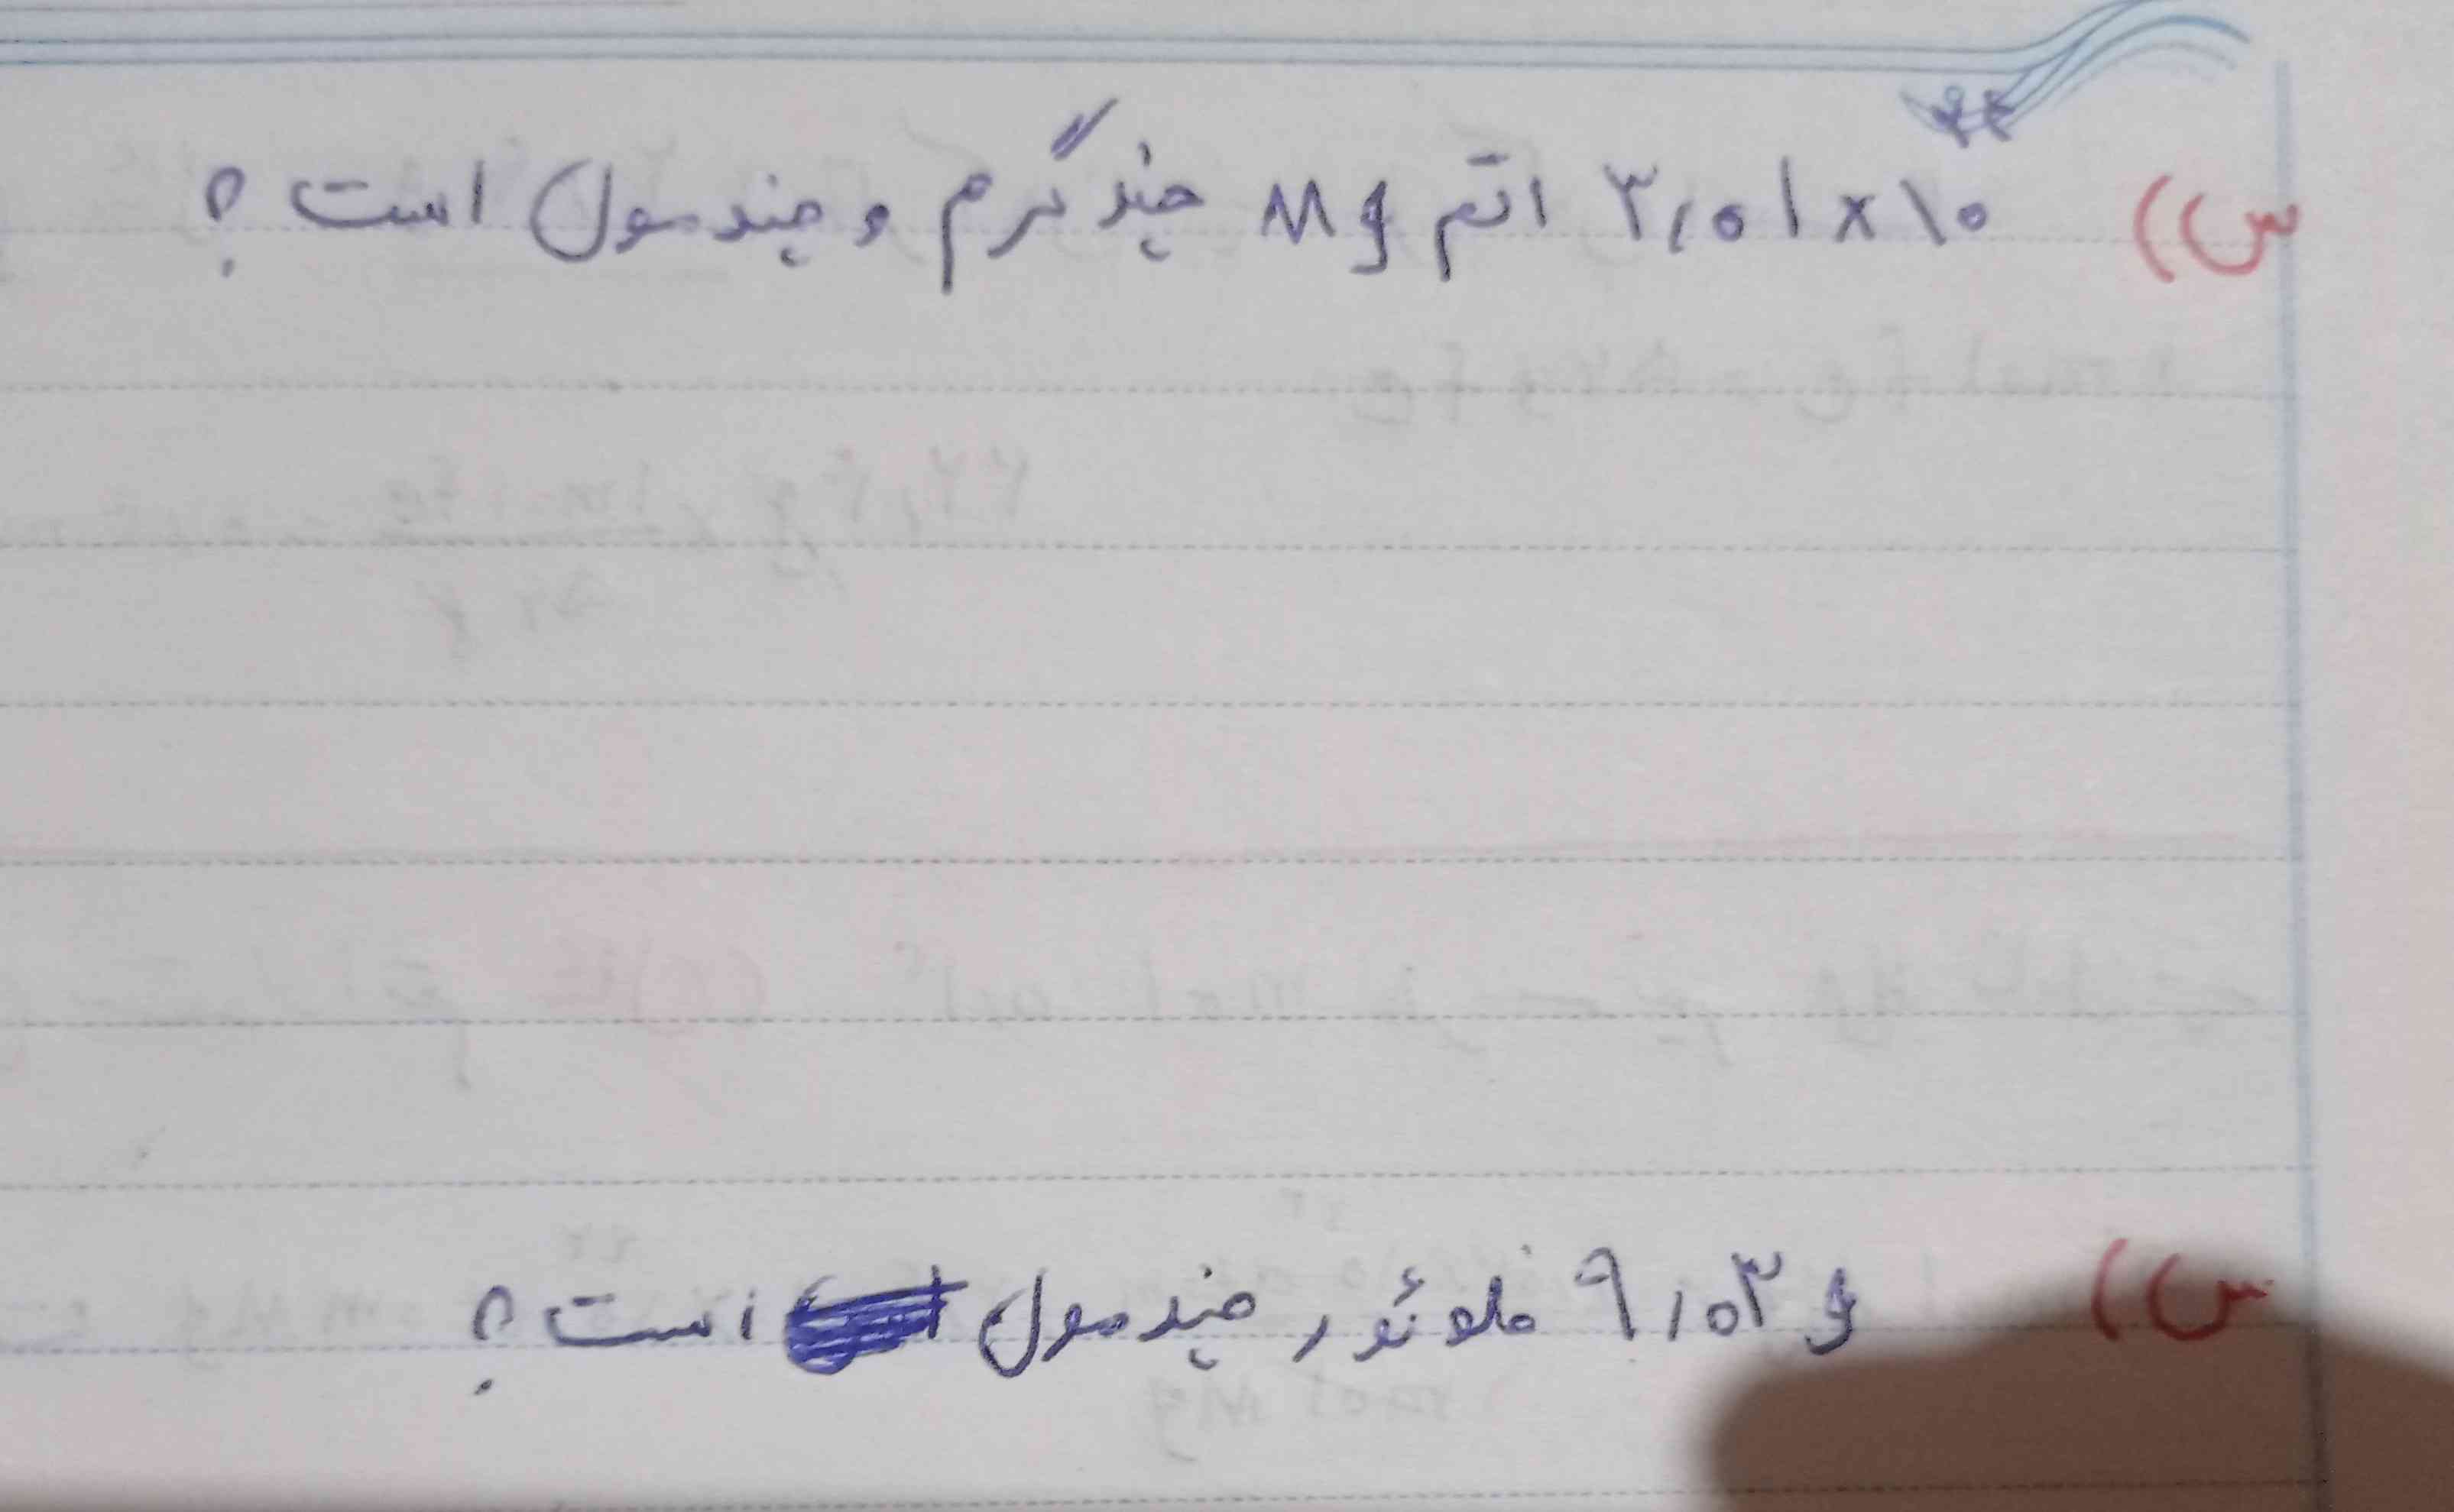 س) ۳٫۰۱×۱۰^۲۲ اتم Mg چند گرم و چند مول است ؟
س) ۹٫۰۳ g فلوئور چند مول است ؟